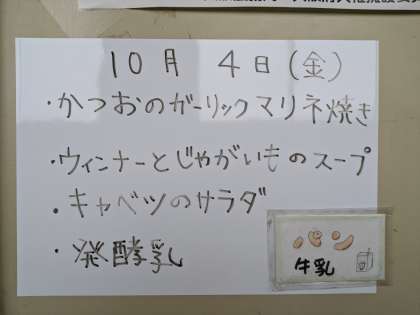 10月 4日(金)
・かつおのガーリックマリネ焼き
・ウィンナーとじゃがいものスープ
・キャベツのサラダ
・発酵乳
パン
牛乳